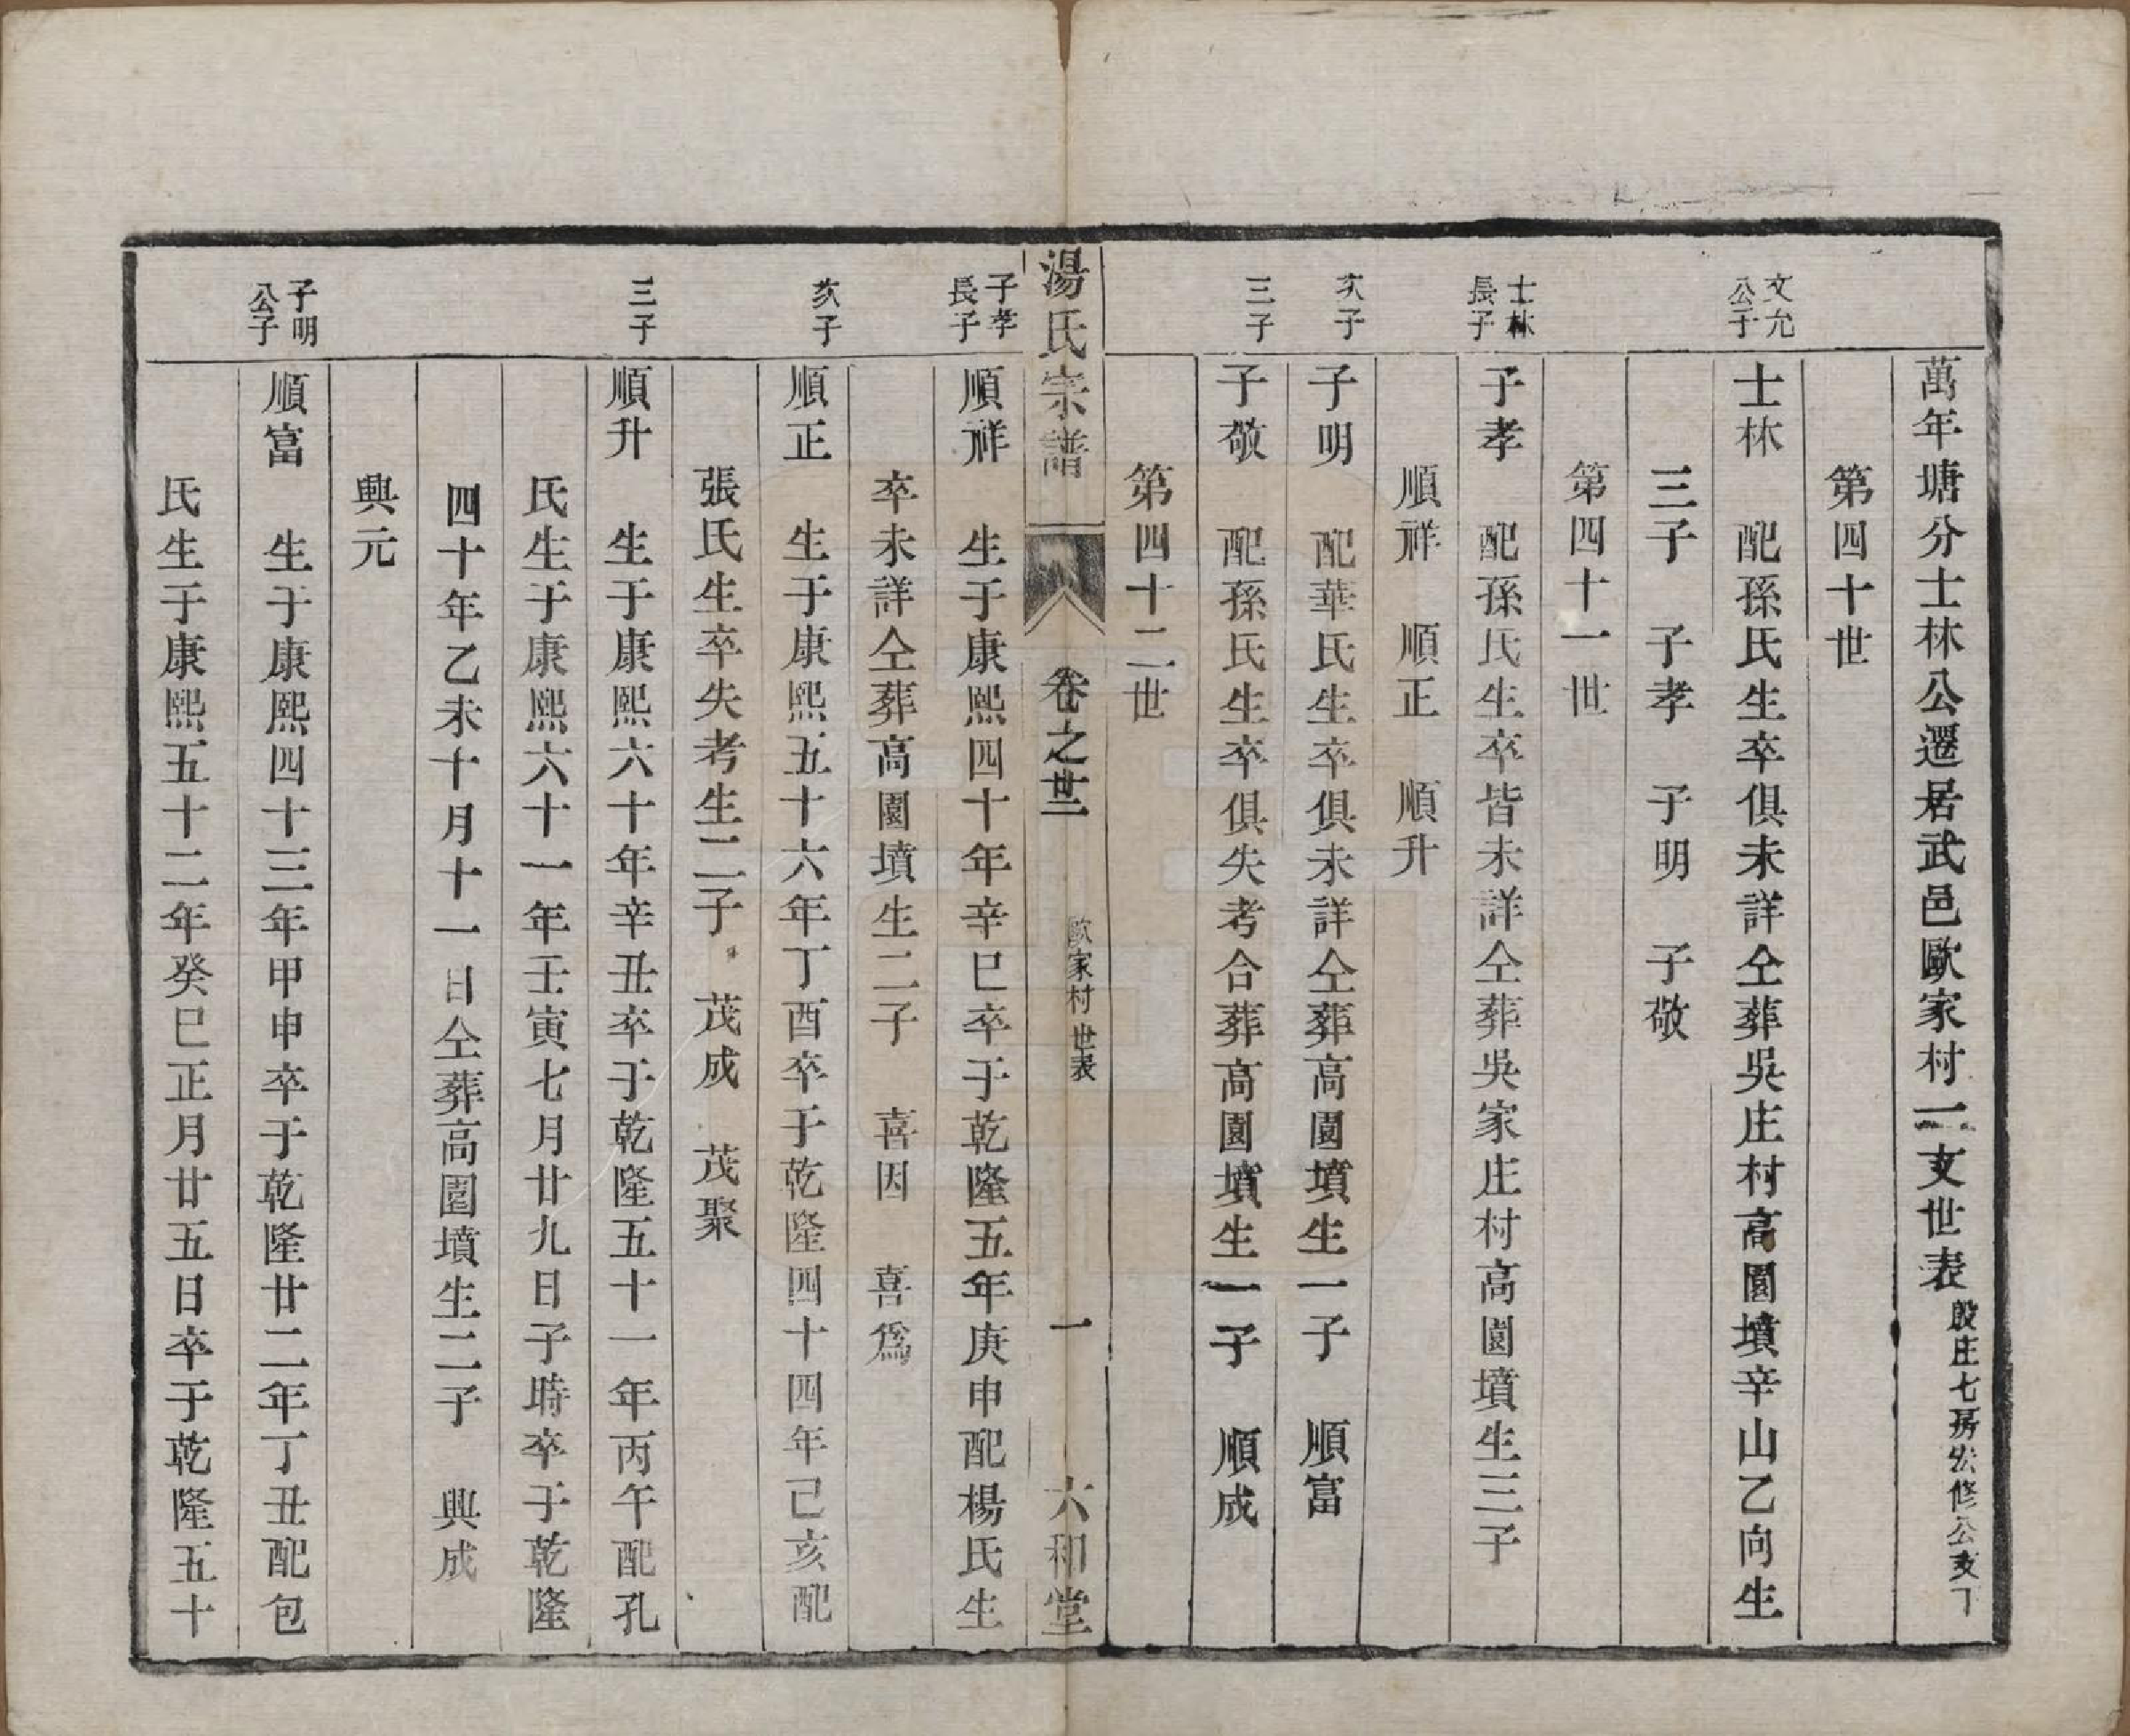 萬年塘分士林公遷居武邑歐家村一支世表 殷庄七房宏修公支下
第四十世
文允公子
士林 配孫氏生卒俱未詳仝葬吳庄村高園墳辛山乙向生
三子 子孝 子明 子敬
第四十一世
士林長子
子孝 配孫氏生卒皆未詳仝葬吳家庄村高園墳生三子
順祥 順正 順升
次子
子明 配華氏生卒俱未詳仝葬高園墳生一子 順富
三子
子敬 配孫氏生卒俱失考合葬高園墳生一子 順成
第四十二世
湯氏宗譜 卷之廿二 歐家村世表 一 六和堂
子孝長子
順祥 生于康熙四十年辛巳卒于乾隆五年庚申配楊氏生
卒未詳仝葬高園墳生二子 喜因 喜為
次子
順正 生于康熙五十六年丁酉卒于乾隆四十四年己亥配
張氏生卒失考生二子 茂成 茂聚
三子
順升 生于康熙六十年辛丑卒于乾隆五十一年丙午配孔
氏生于康熙六十一年壬寅七月廿九日子時卒于乾隆
四十年乙未十月十一日仝葬高園墳生二子 興成
興元
子明公子
順富 生于康熙四十三年甲申卒于乾隆廿二年丁丑配包
氏生于康熙五十二年癸巳正月廿五日卒于乾隆五十